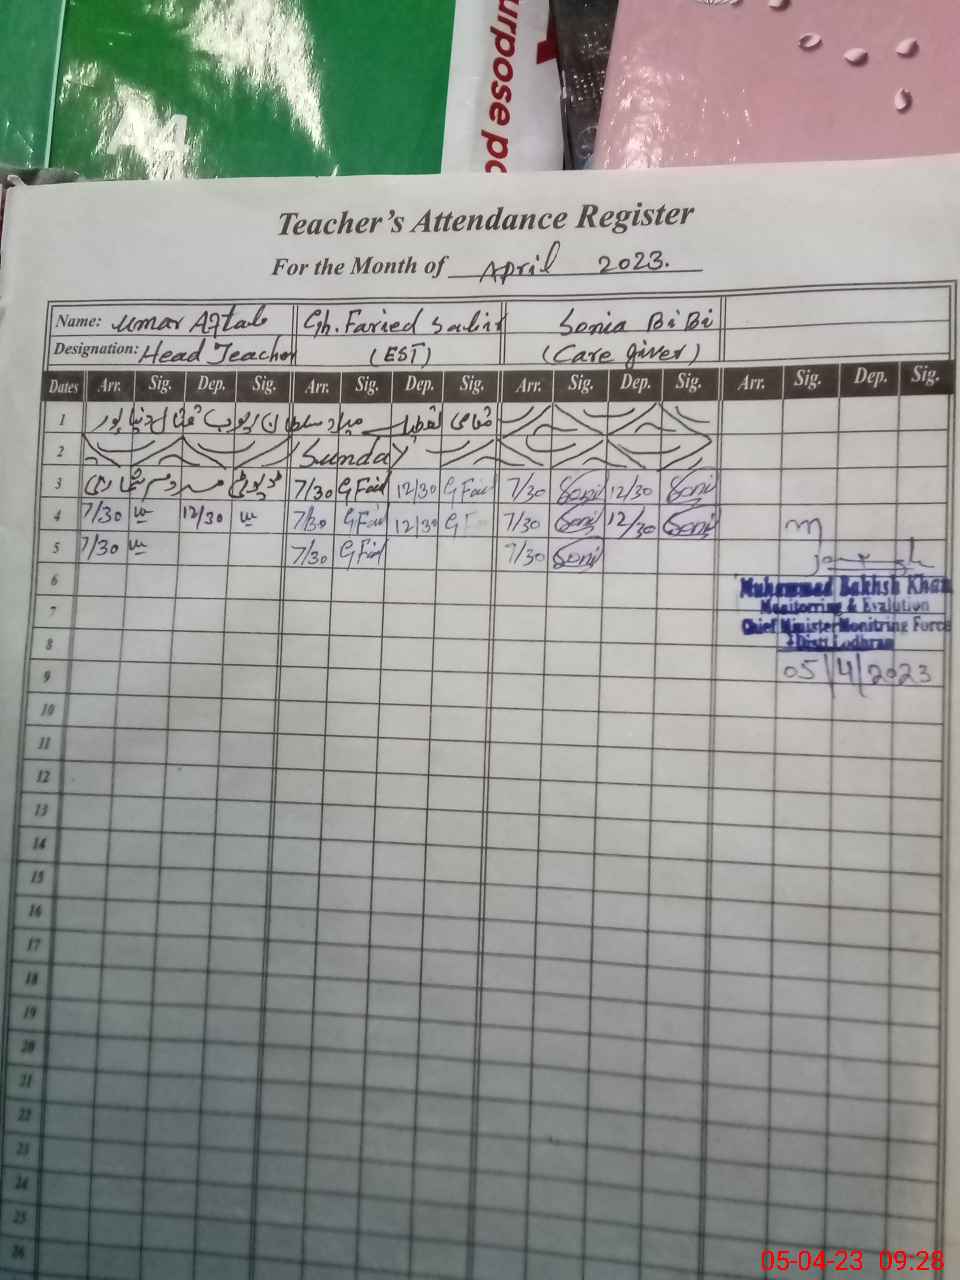 A4
urpose pa
Teacher's Attendance Register
For the Month of April 2023.
Name: Umar Aftab Gh. Faried Sabir Sonia BiBi
Designation: Head Teacher (EST) (Care giver)
Dates Arr. Sig. Dep. Sig. Arr. Sig. Dep. Sig. Arr. Sig. Dep. Sig. Arr. Sig. Dep. Sig.
1 مقامی تعطیل
2 Sunday
3 ڈیوٹی مردم شماری 7/30 G Farid 12/30 G Farid 7/30 Soni 12/30 Soni
4 7/30 12/30 7/30 G Farid 12/30 G F 7/30 Soni 12/30 Soni
5 7/30 7/30 G Farid 7/30 Soni
6
Muhammad Bakhsh Khan
7 Monitorring & Evalution
Chief Minister Monitring Force
8 Distt Lodhran
9 05/4/2023
10
11
12
13
14
15
16
17
18
19
20
21
22
23
24
25
26
05-04-23 09:28